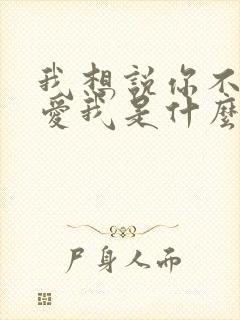 我想說你不
愛我是什麼
尸身人而